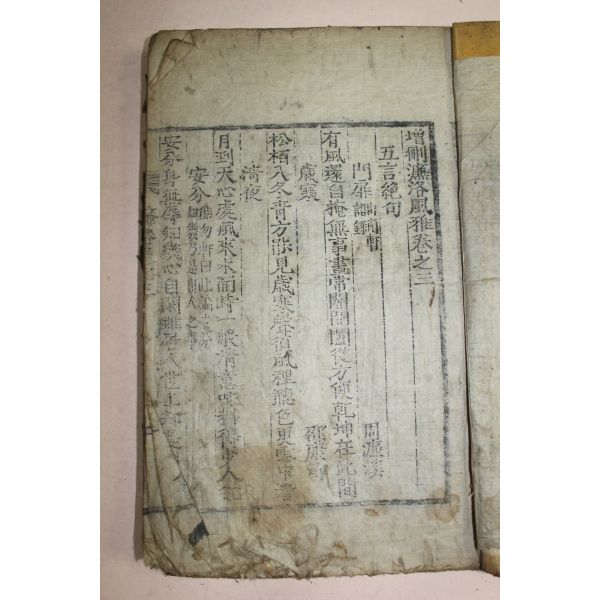 增刪濂洛風雅卷之三
五言絶句
門扉 周濂溪
有風還自掩無事晝常關開闔從方便乾坤在此間
歲寒 邵康節
松栢入冬青方能見歲寒聲須風裡聽色更雪中看
淸夜
月到天心處風來水面時一般淸意味料得少人知
安分
安分身無辱知幾心自閑雖居人世上却是出人